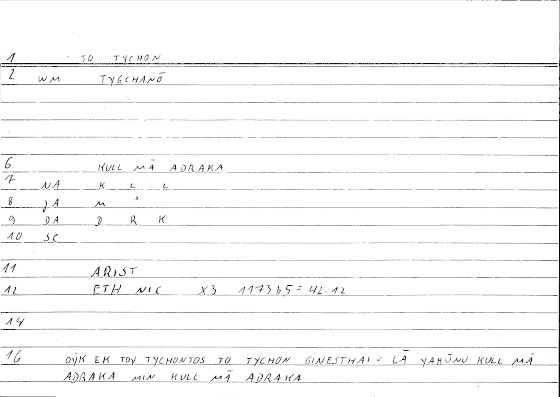 1 TO TYCHON
2 WM TYGCHANŌ
6 KULL MĀ ADRAKA
7 NA K L L
8 JA M '
9 DA D R K
10 SC
11 ARIST
12 ETH NIC X3 1173b5 = 42.12
14
16 OYK EK TOY TYCHONTOS TO TYCHON GINESTHAI = LĀ YAKŪNU KULL MĀ
ADRAKA MIN KULL MĀ ADRAKA